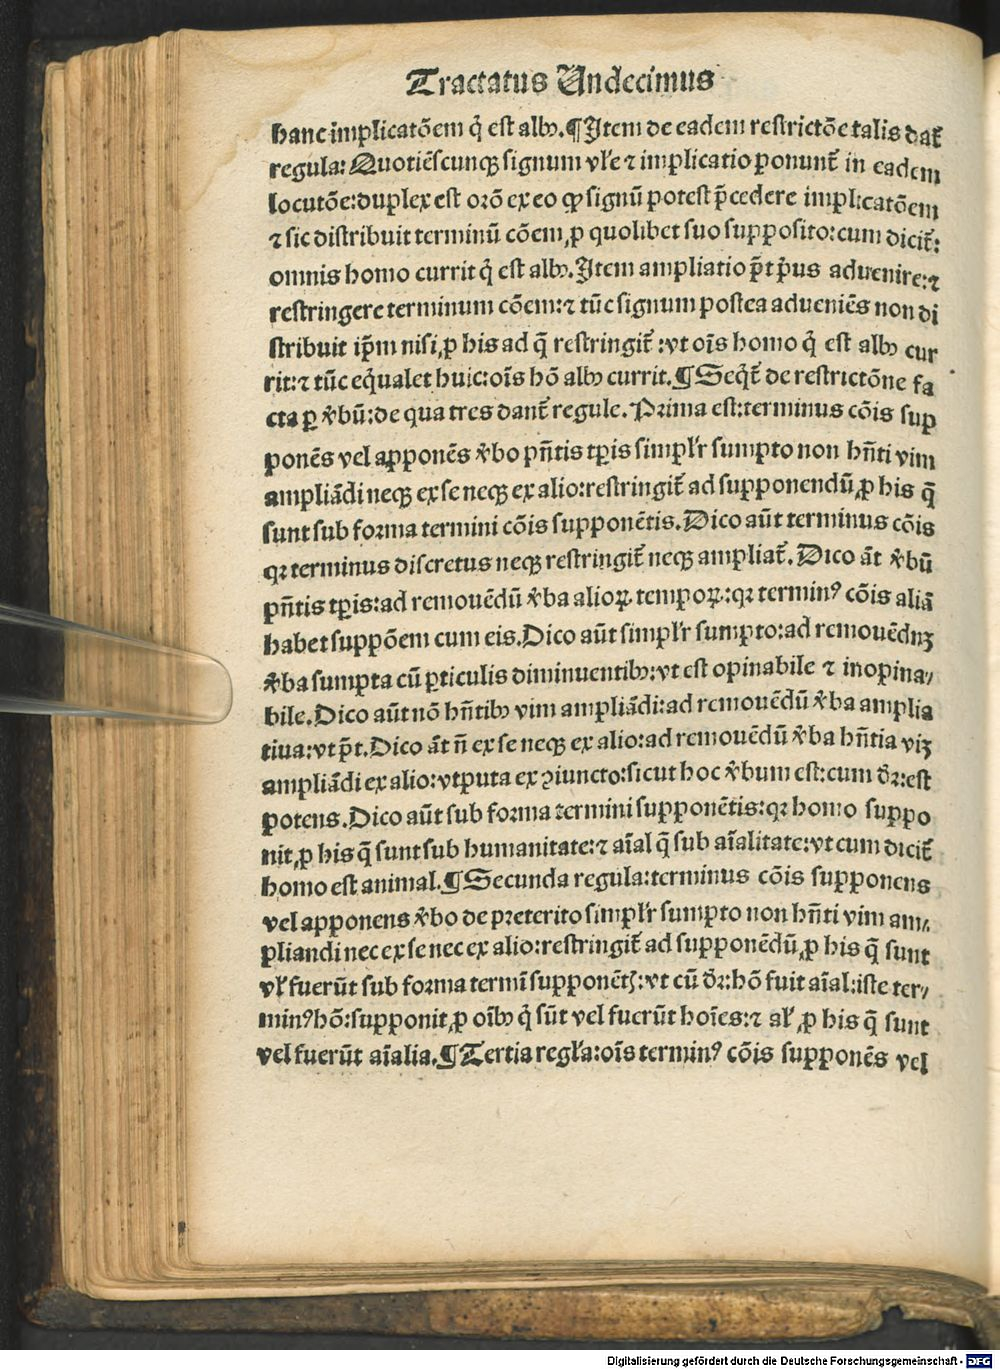 Tractatus Undecimus
hanc implicatõem q̇ est albꝰ.¶Item de eadem restrictõe talis dat᷑
regula: Quotiẽscunqꝫ signum vl̓e ⁊ implicatio ponunt᷑ in eadem
locutõe: duplex est orõ ex eo ꝙ signũ potest p̄cedere implicatõem
⁊ sic distribuit terminũ cõem ꝓ quolibet suo supposito: cum dicit᷑:
omnis homo currit q̇ est albꝰ. Item ampliatio p̄t pͥus aduenire: ⁊
restringere terminum cõem: ⁊ tũc signum postea adueniẽs non di
stribuit ip̄m nisi ꝓ his ad q̄ restringit᷑: vt oĩs homo q̇ est albꝰ cur
rit: ⁊ tũc eq̇ualet huic: oĩs hõ albꝰ currit.¶Seq̇t᷑ de restrictõne fa
cta ꝑ v̓bũ: de qua tres dant᷑ regule. Prima est: terminus cõis sup
ponẽs vel apponẽs v̓bo pñtis tꝑis simpl̓r sumpto non hñti vim
ampliãdi neqꝫ ex se neqꝫ ex alio: restringit᷑ ad supponendũ ꝓ his q̄
sunt sub forma termini cõis supponẽtis. Dico aũt terminus cõis
qꝛ terminus discretus neqꝫ restringit᷑ neqꝫ ampliat᷑. Dico ãt v̓bũ
pñtis tꝑis: ad remouẽdũ v̓ba alioꝝ tempoꝝ: qꝛ terminꝰ cõis aliã
habet suppõem cum eis. Dico aũt simpl̓r sumpto: ad remouẽduꝫ
v̓ba sumpta cũ ꝑticulis diminuentibꝰ: vt est opinabile ⁊ inopina⸗
bile. Dico aũt nõ hñtibꝰ vim ampliãdi: ad remouẽdũ v̓ba amplia
tiua: vt p̄t. Dico ãt ñ ex se neqꝫ ex alio: ad remouẽdũ v̓ba hñtia viꝫ
ampliãdi ex alio: vtputa ex ꝯiuncto: sicut hoc v̓bum est: cum dr̄: est
potens. Dico aũt sub forma termini supponẽtis: qꝛ homo suppo
nit ꝓ his q̄ sunt sub humanitate: ⁊ aĩal q̄ sub aĩalitate: vt cum dicit᷑
homo est animal.¶Secunda regula: terminus cõis supponens
vel apponens v̓bo de preterito simpl̓r sumpto non hñti vim am⸗
pliandi nec ex se nec ex alio: restringit᷑ ad supponẽdũ ꝓ his q̄ sunt
vl̓ fuerũt sub forma termĩ supponẽtꝭ: vt cũ dr̄: hõ fuit aĩal: iste ter⸗
minꝰ hõ: supponit ꝓ oĩbꝰ q̇ sũt vel fuerũt hoĩes: ⁊ al̓ ꝓ his q̄ sunt
vel fuerũt aĩalia.¶Tertia regl̓a: oĩs terminꝰ cõis supponẽs vel
Digitalisierung gefördert durch die Deutsche Forschungsgemeinschaft - DFG